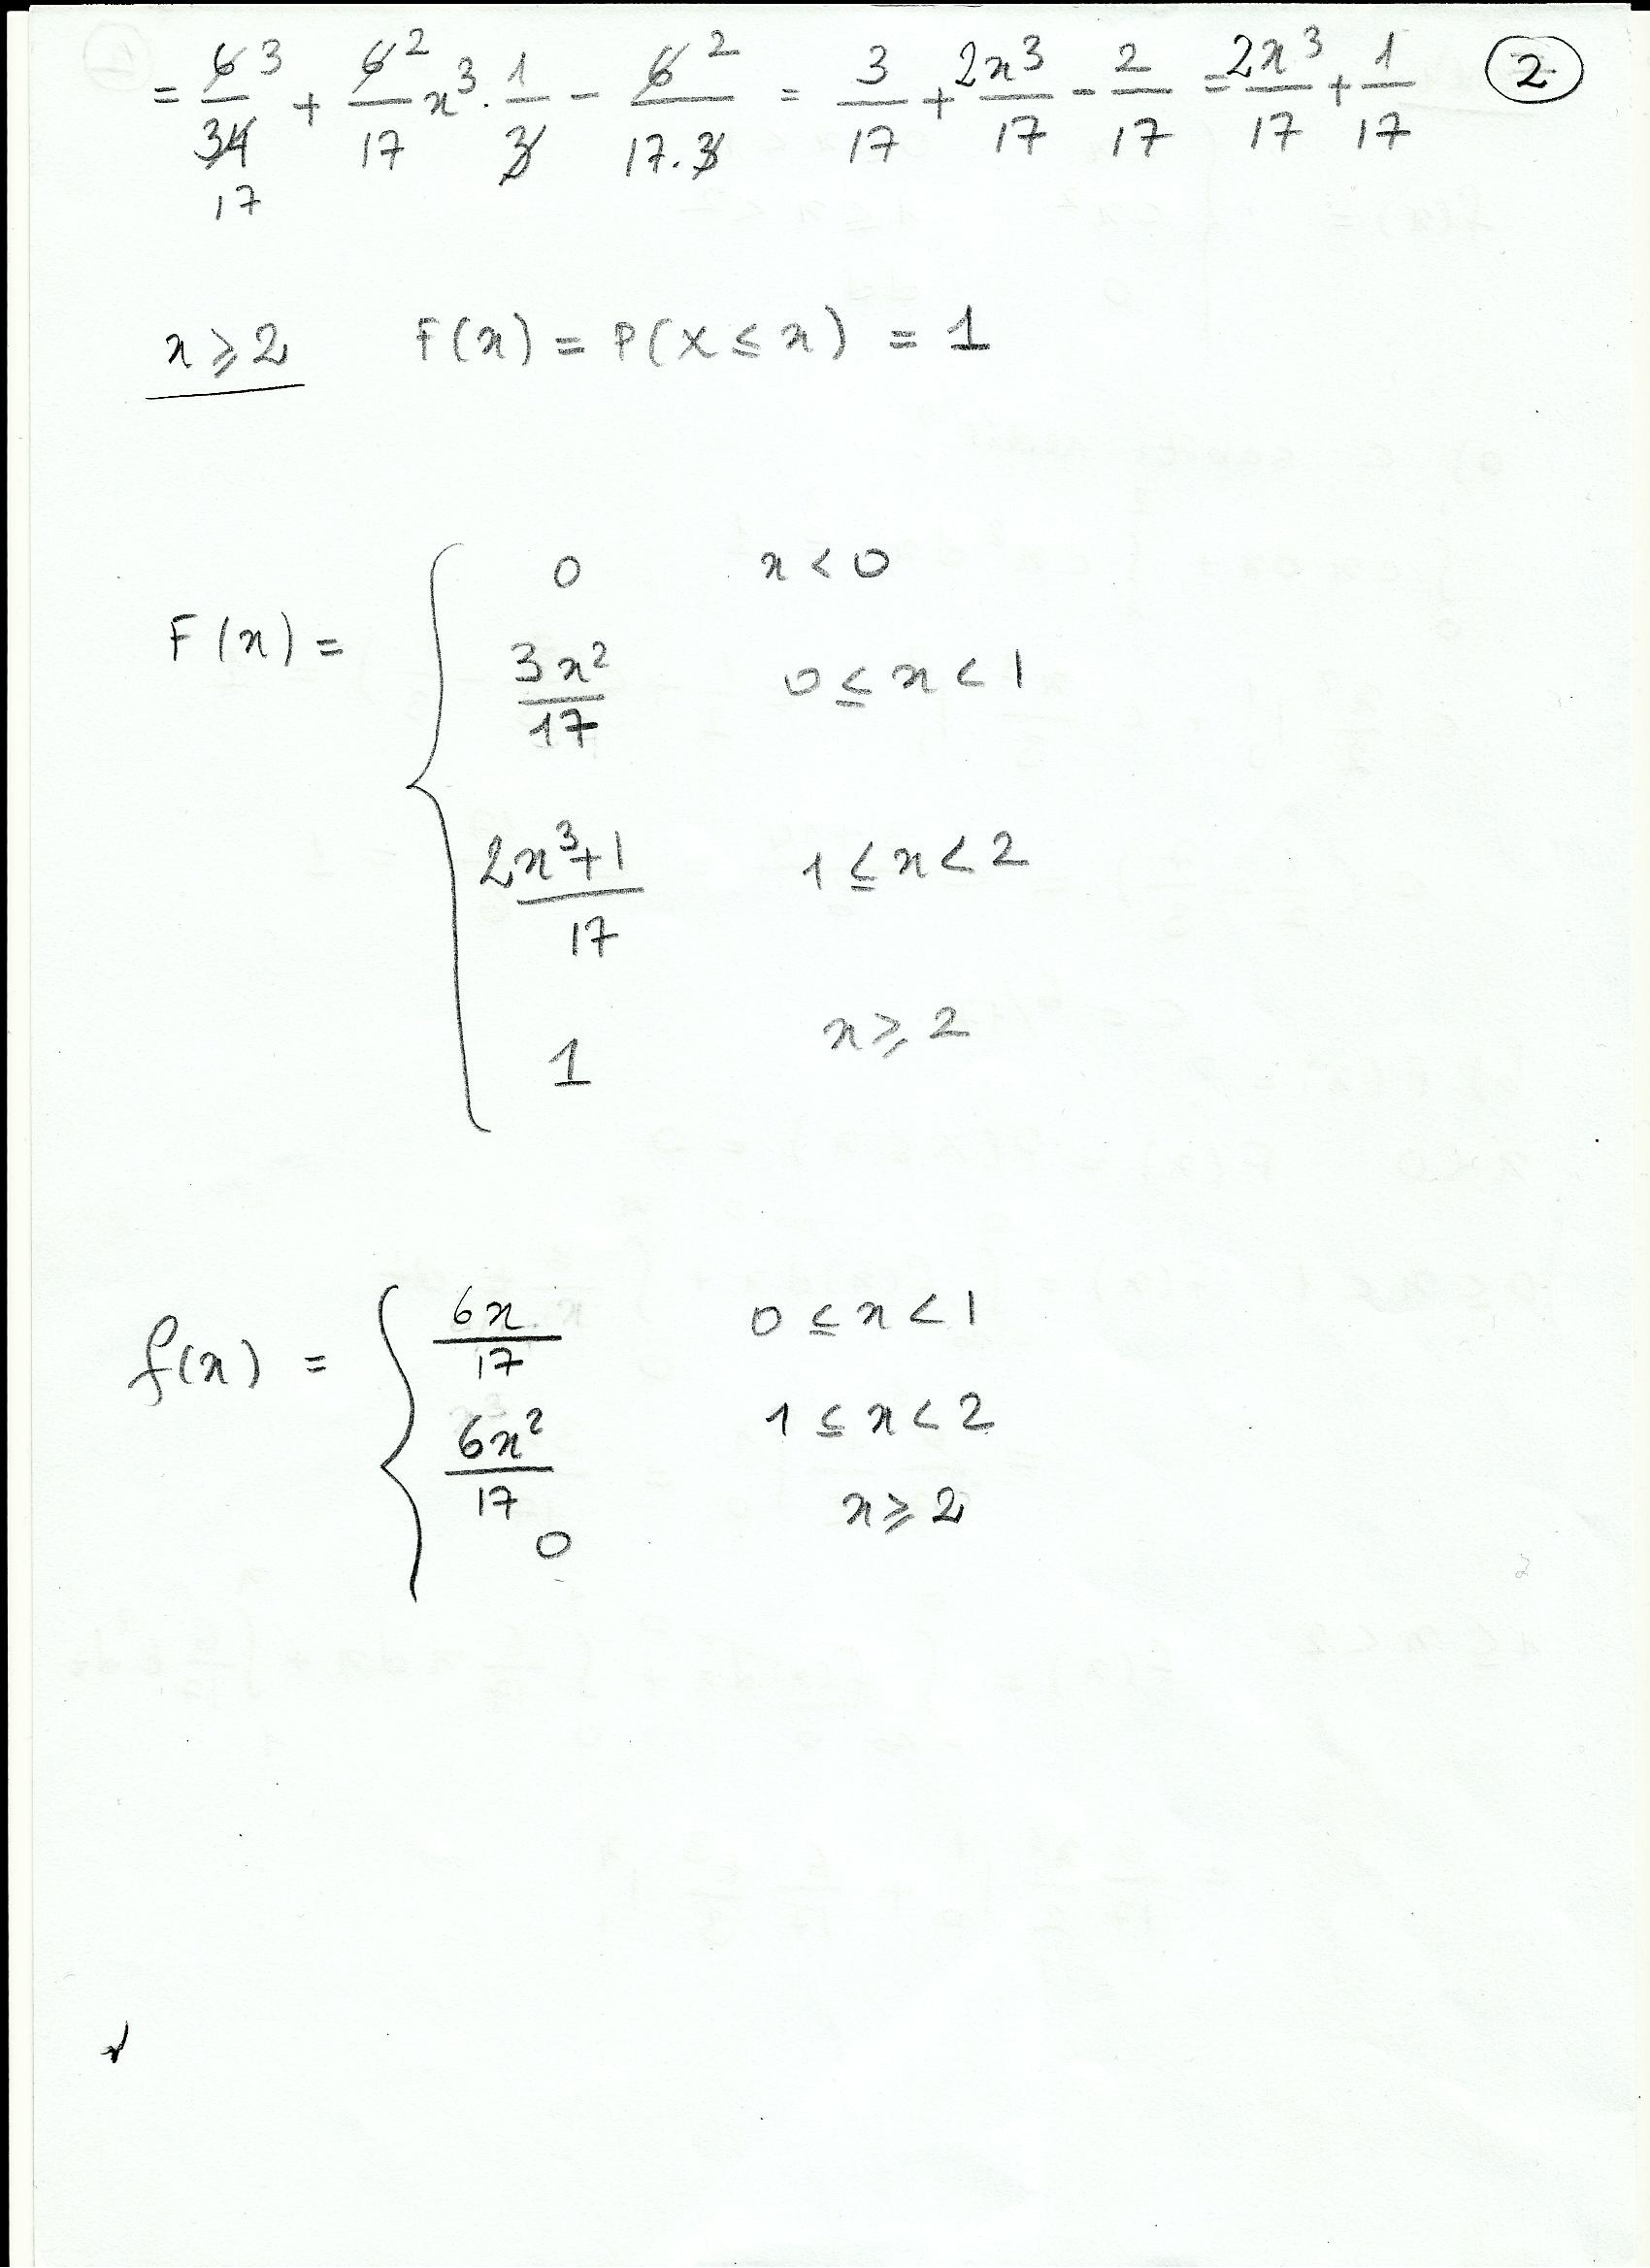 = 6 3/34 17 + 6 2/17 x³ · 1/3 − 6 2/17·3 = 3/17 + 2x³/17 − 2/17 = 2x³/17 + 1/17 2
x ⩾ 2 F(x) = P(X ≤ x) = 1
F(x) = { 0 x < 0
3x²/17 0 ≤ x < 1
2x³+1/17 1 ≤ x < 2
1 x ⩾ 2
f(x) = { 6x/17 0 ≤ x < 1
6x²/17 1 ≤ x < 2
0 x ⩾ 2